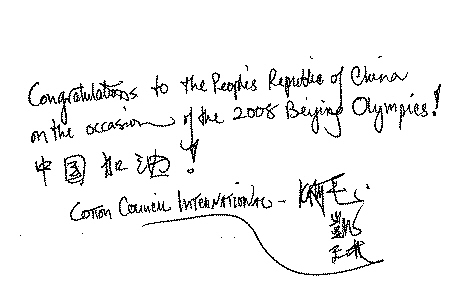 Congratulations to the People's Republic of China
on the occasion of the 2008 Beijing Olympics!
中国加油!
Cotton Council International -